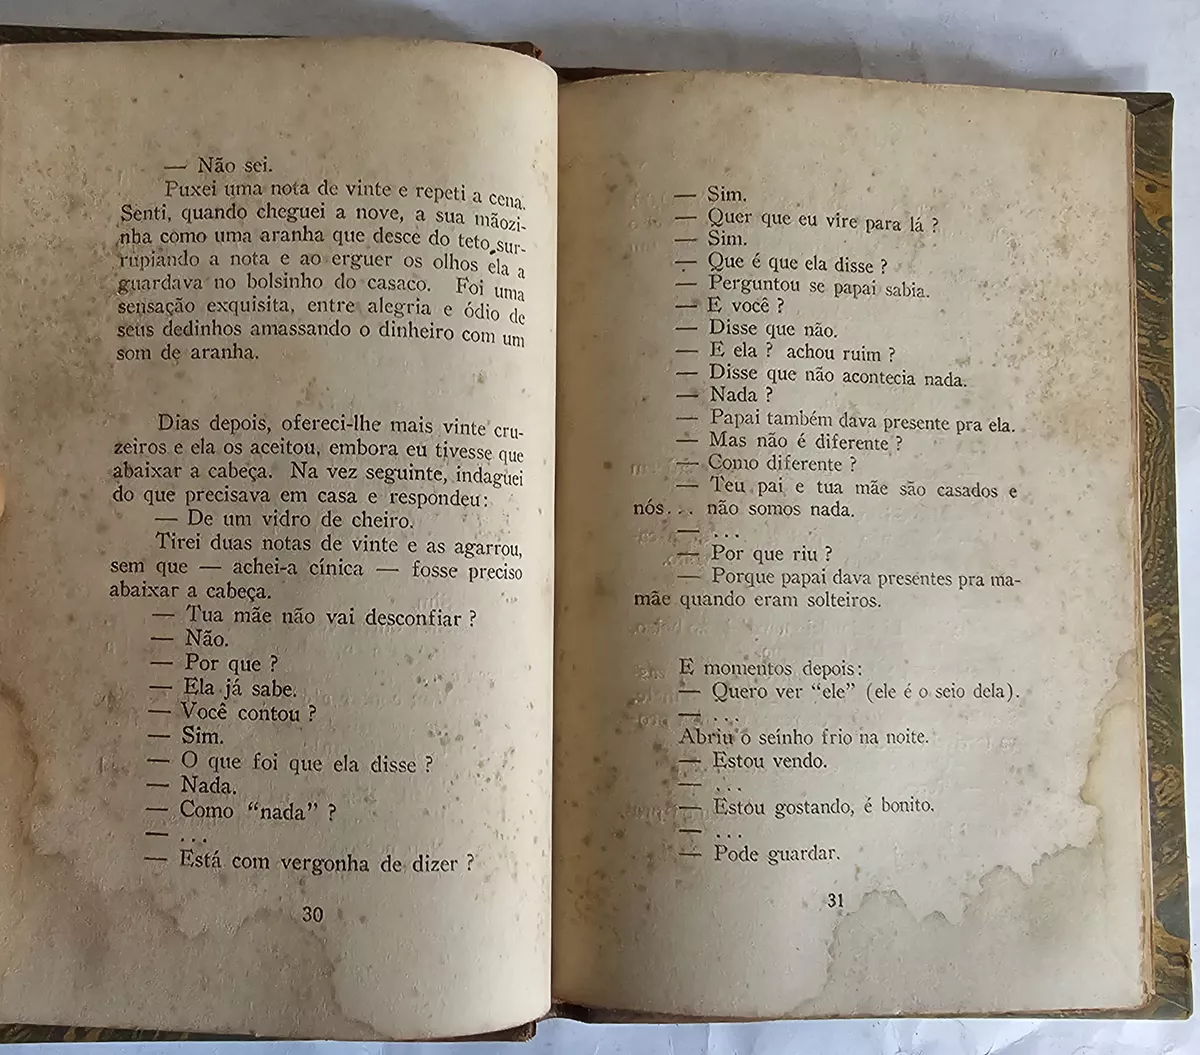 — Não sei.
Puxei uma nota de vinte e repeti a cena.
Senti, quando cheguei a nove, a sua mãozi-
nha como uma aranha que desce do teto sur-
rupiando a nota e ao erguer os olhos ela a
guardava no bolsinho do casaco. Foi uma
sensação exquisita, entre alegria e ódio de
seus dedinhos amassando o dinheiro com um
som de aranha.
Dias depois, ofereci-lhe mais vinte cru-
zeiros e ela os aceitou, embora eu tivesse que
abaixar a cabeça. Na vez seguinte, indaguei
do que precisava em casa e respondeu:
— De um vidro de cheiro.
Tirei duas notas de vinte e as agarrou,
sem que — achei-a cínica — fosse preciso
abaixar a cabeça.
— Tua mãe não vai desconfiar ?
— Não.
— Por que ?
— Ela já sabe.
— Você contou ?
— Sim.
— O que foi que ela disse ?
— Nada.
— Como “nada” ?
— ...
— Está com vergonha de dizer ?
30
— Sim.
— Quer que eu vire para lá ?
— Sim.
— Que é que ela disse ?
— Perguntou se papai sabia.
— E você ?
— Disse que não.
— E ela ? achou ruim ?
— Disse que não acontecia nada.
— Nada ?
— Papai também dava presente pra ela.
— Mas não é diferente ?
— Como diferente ?
— Teu pai e tua mãe são casados e
nós... não somos nada.
— ...
— Por que riu ?
— Porque papai dava presentes pra ma-
mãe quando eram solteiros.
E momentos depois:
— Quero ver “ele” (ele é o seio dela).
— ...
Abriu o seínho frio na noite.
— Estou vendo.
— ...
— Estou gostando, é bonito.
— ...
— Pode guardar.
31